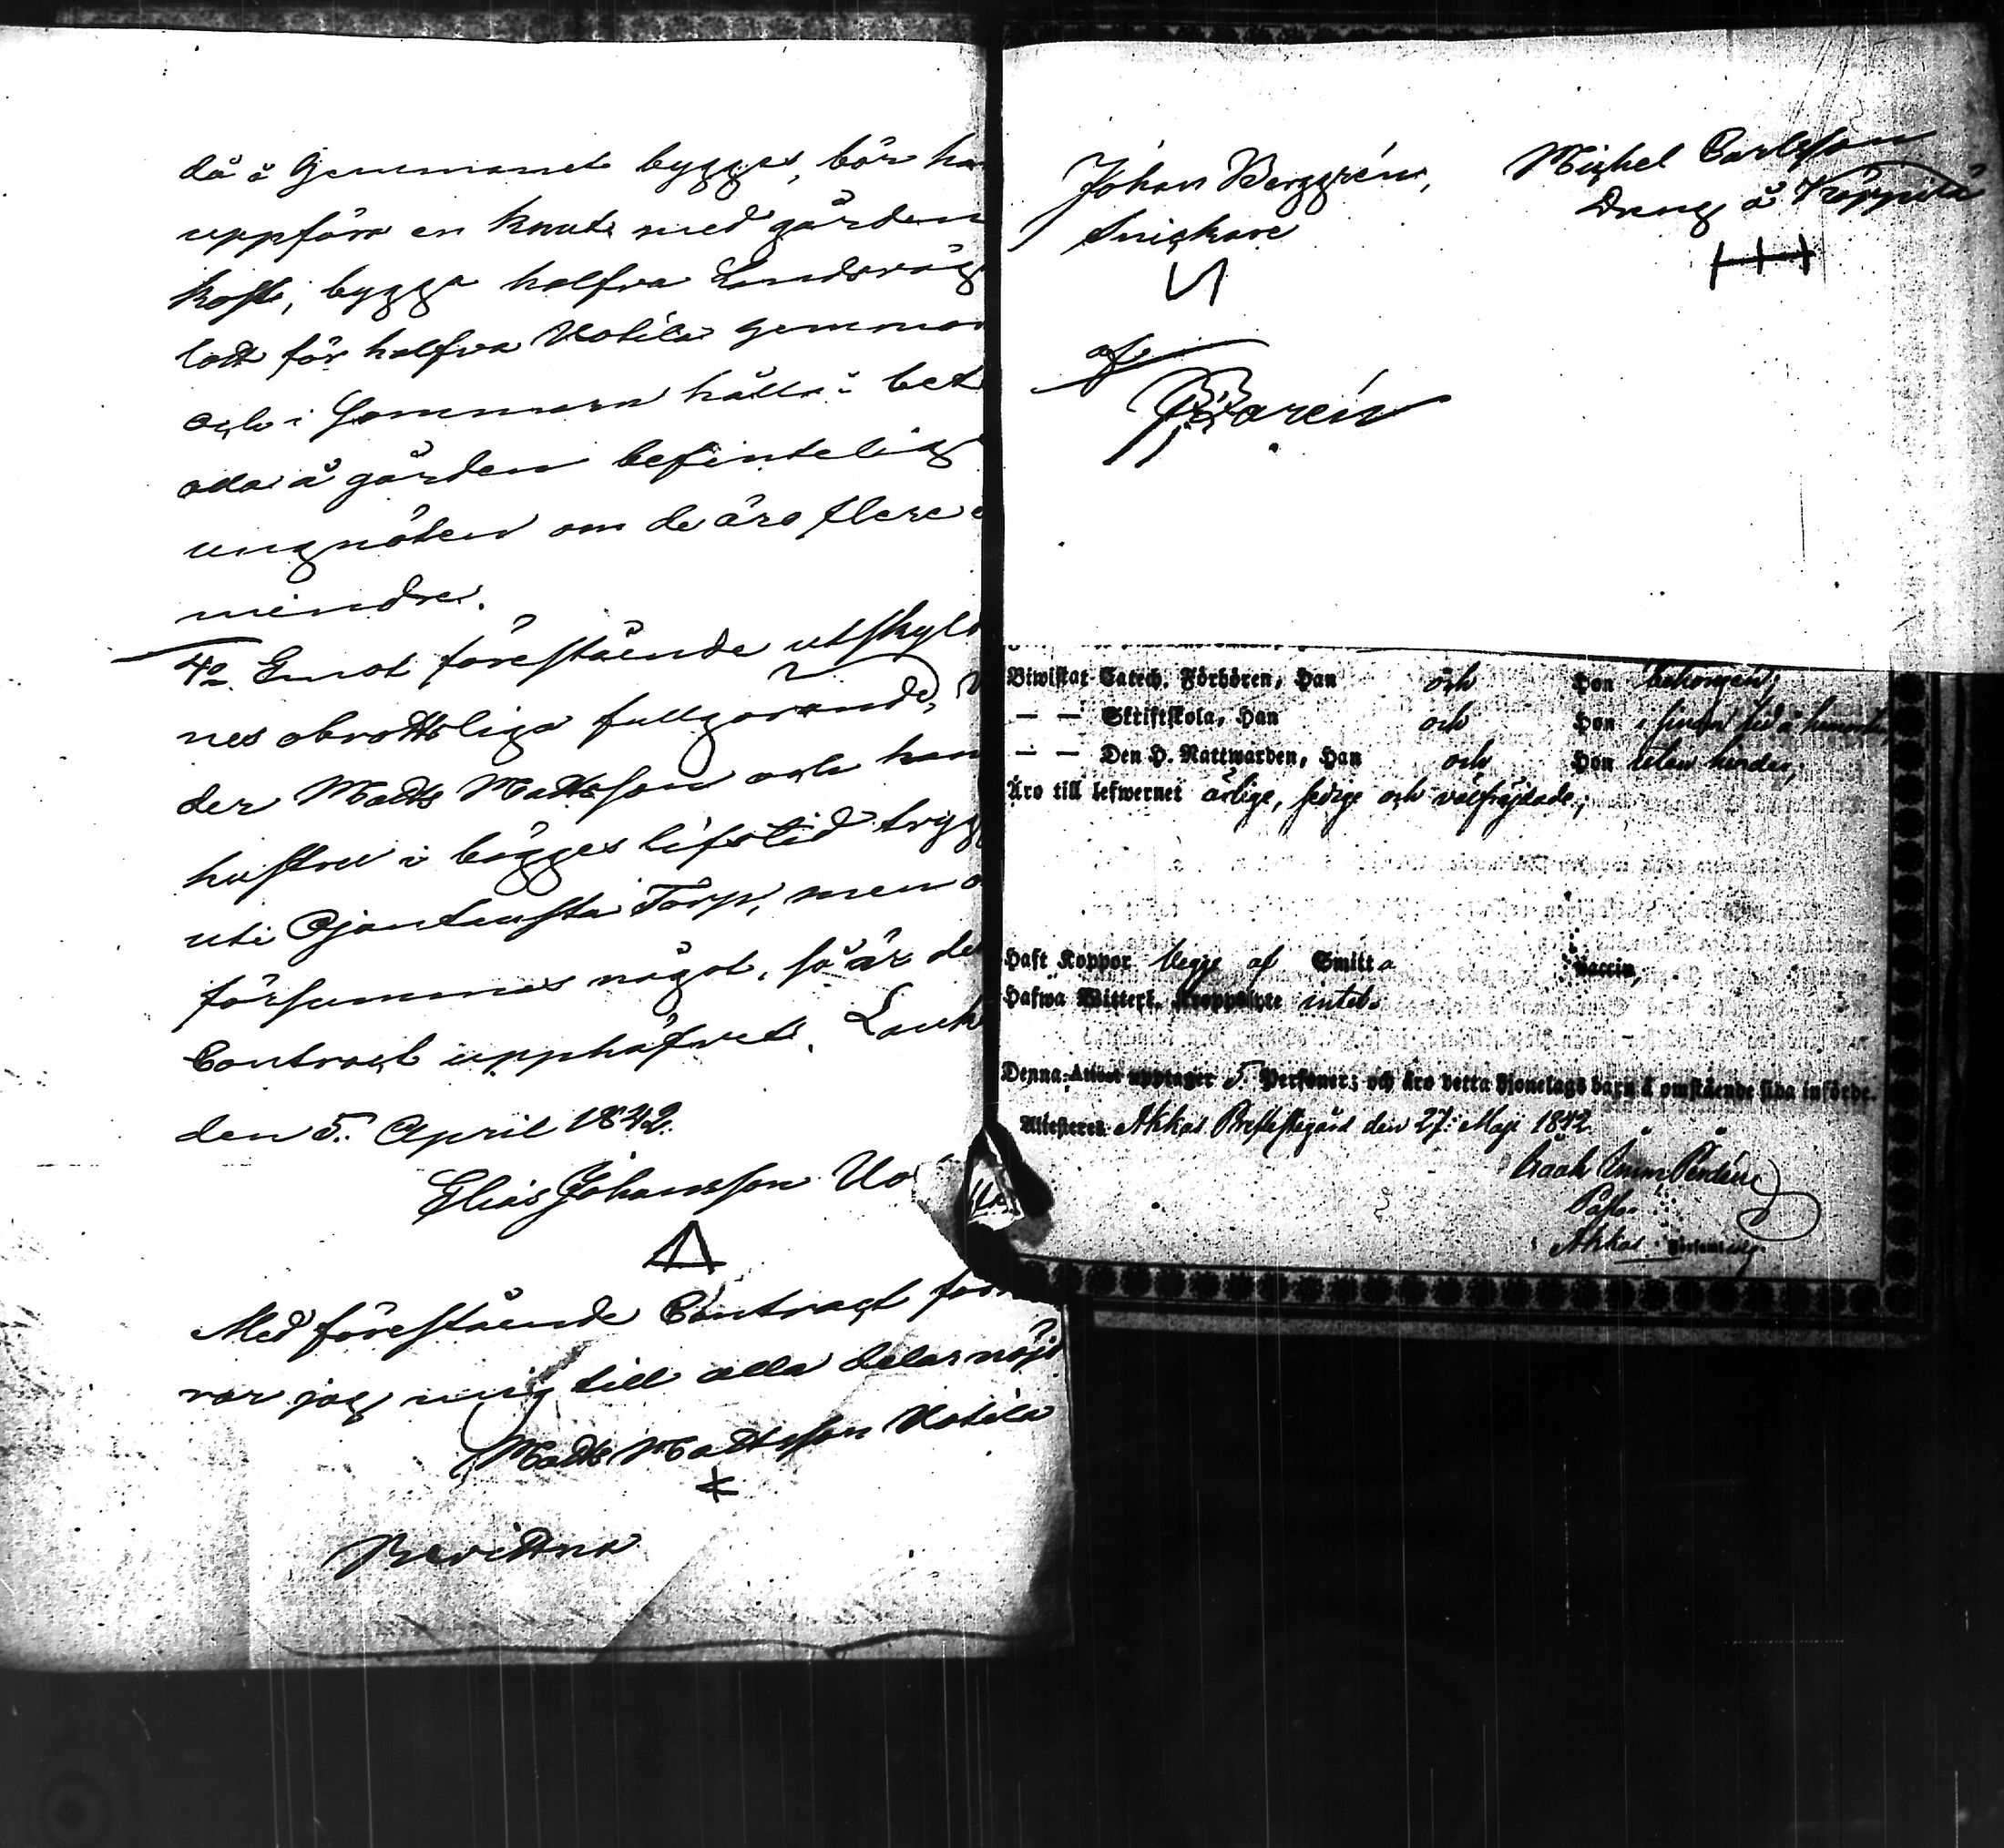 då å Hemmanet bygges, bör ha
uppföra en knut med gården
kost, bygga halfva Landsväg
lott för halfva Uotila Hemman
och i Sommarn hålla i bet
alla å gården befintelig
ungnöten om de äro flere e
mindre.
4o Emot förestående utskyld
nes obrottsliga fullgörande,
der Matts Mattsson och han
hustru i bägges lifstid trygg
uti Torp, men o
försummas något, så är de
Contract upphäfvet.
den 5. April 1842.
Elias Johansson Uo
Med förestående Contract för
var jag mig till alla delar nöjd
Matts Mattsson Uotila
Bevittna
Johan Berggrén,
Snickare
Michel Carlsson
Dräng å
af
Biwistat Catech. Förhören, Han och Hon
— — Skriftskola, Han och Hon i
— — Den H. Nattwarden, Han och Hon utan hinder;
Äro till lefwernet ärlige, sedige och välfräjdade;
Haft Koppor begge af Smitta Vaccin,
Hafwa Witterl. Kroppslyte intet.
Denna Attest upptager 5. Personer; och äro detta Hjonelags barn å omstående sida införde.
Attesteres Akkas Prestegård den 27. Maji 1842.
Pastor
Akkas Församling.